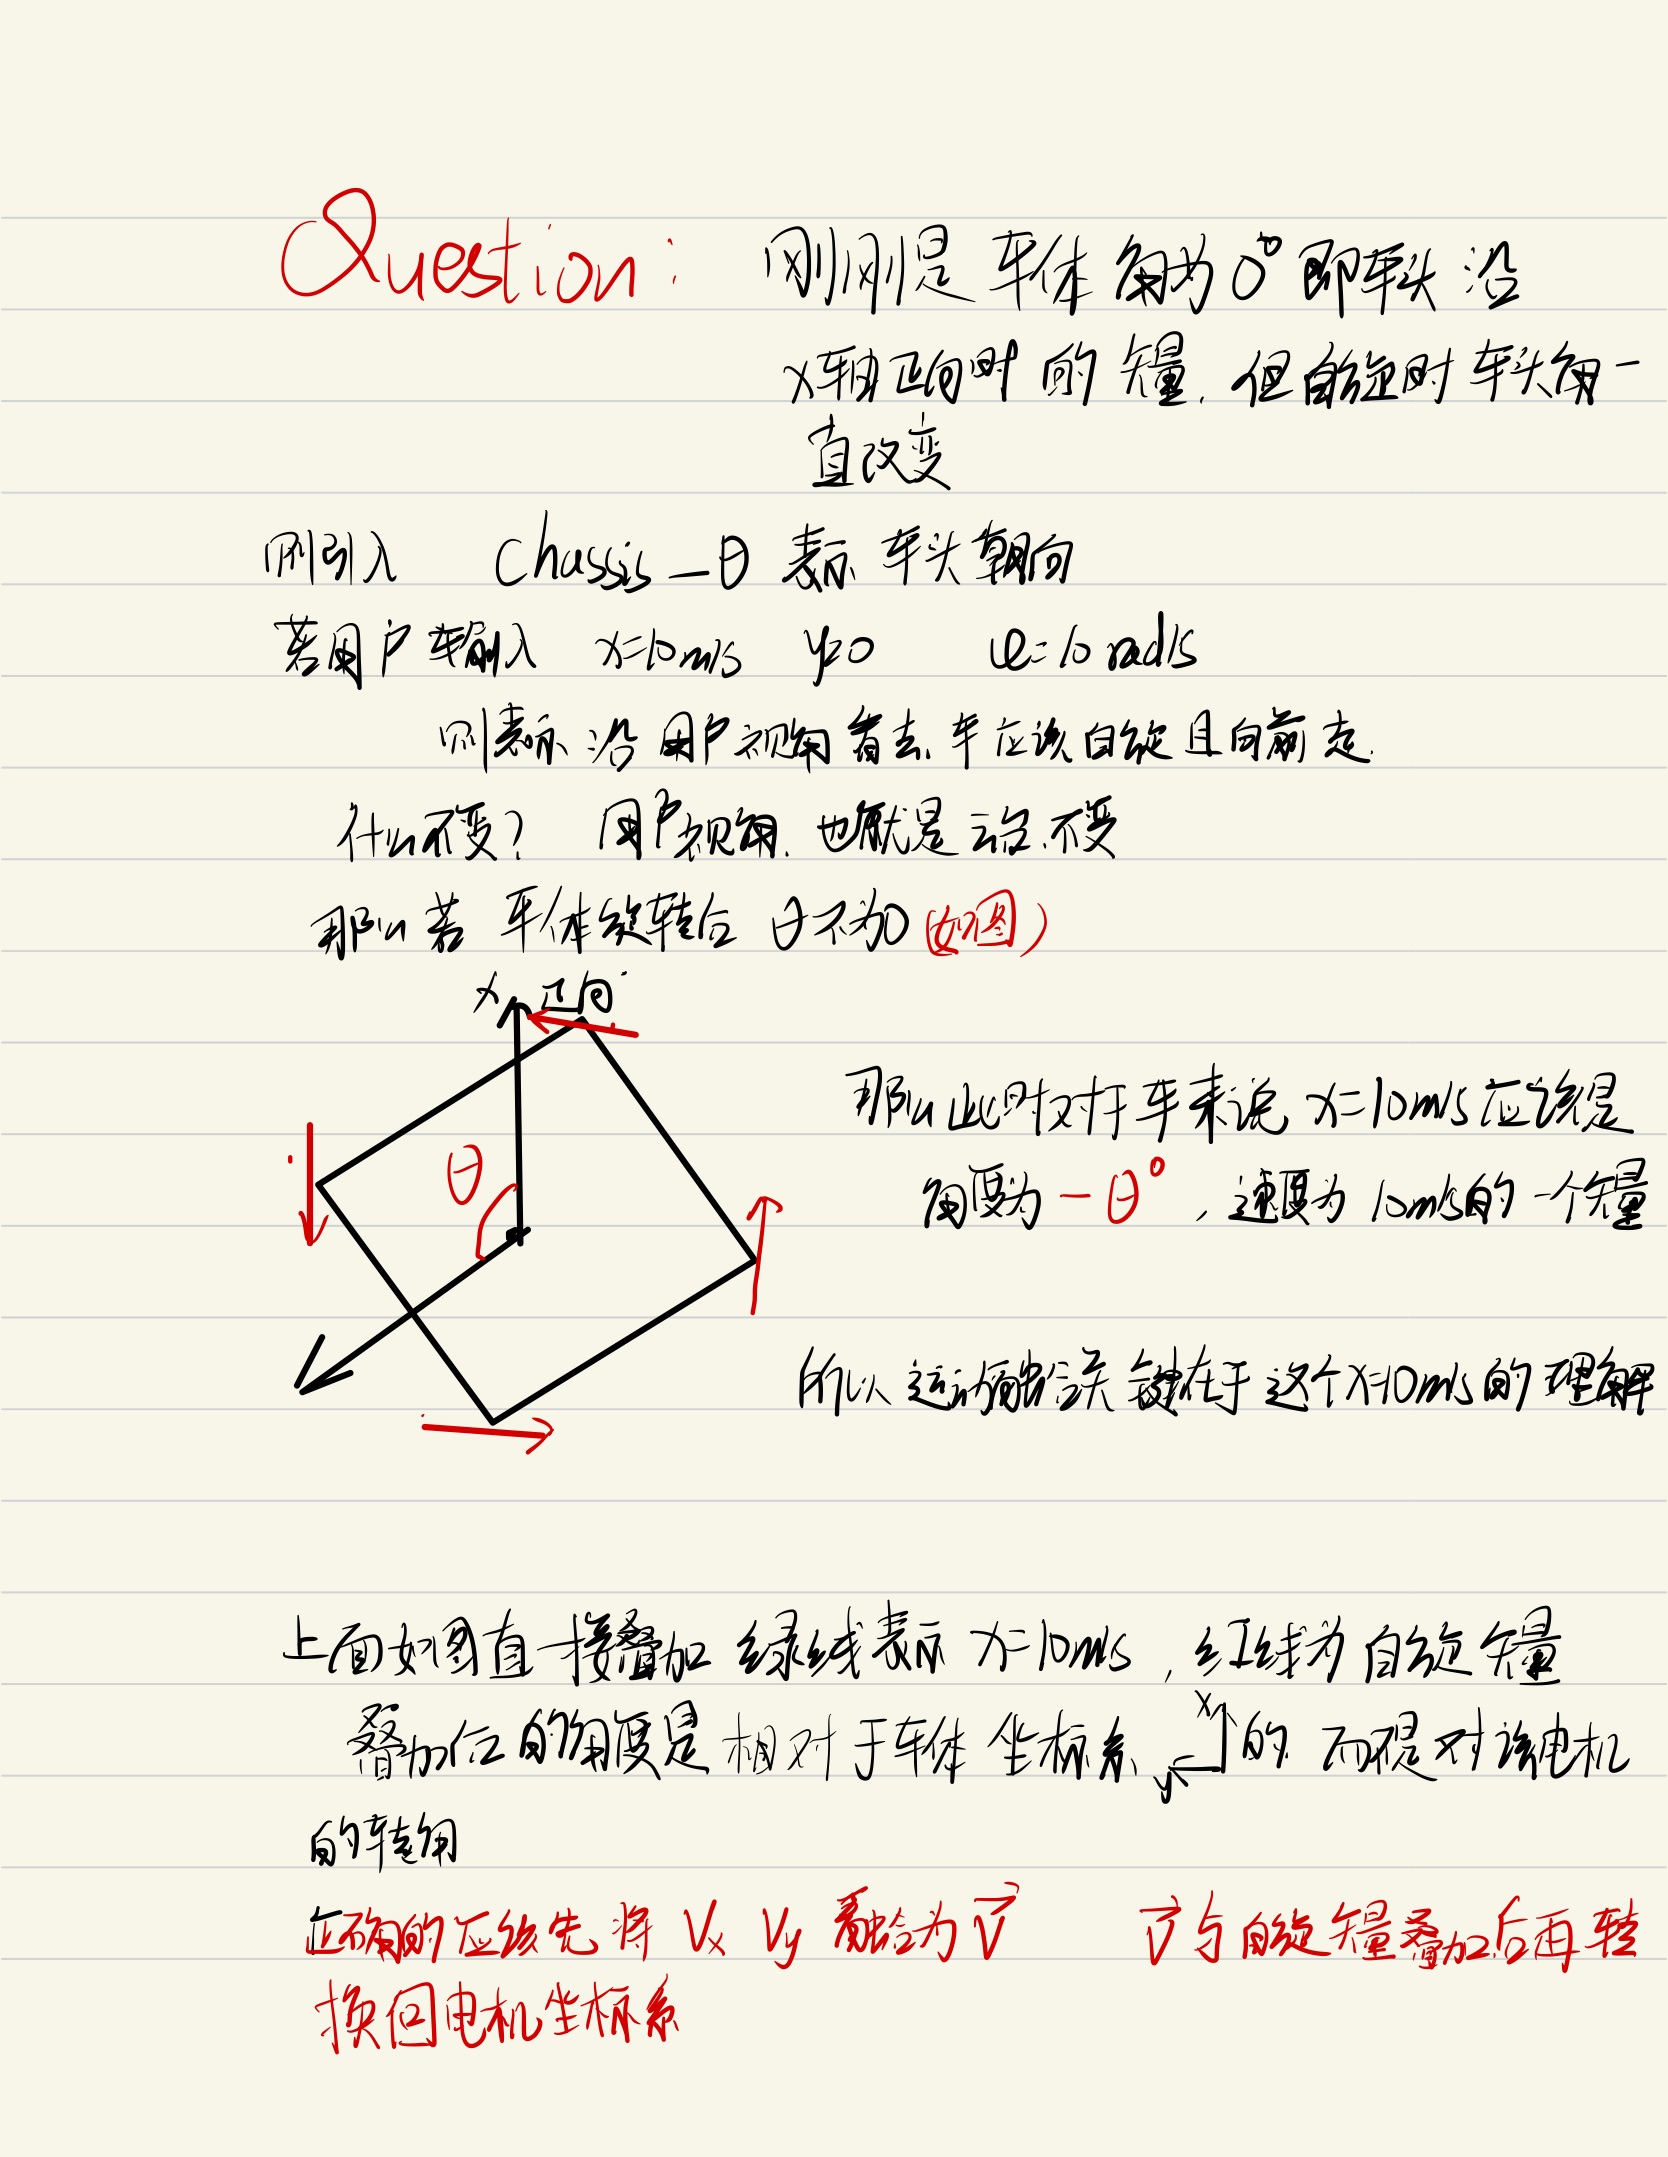 Question: 刚刚是 车体 角为 0° 即车头 沿
x轴正向时 的 矢量. 但自旋时 车头角一
直改变
则引入 Chassis_θ 表示 车头朝向
若用户 输入 x=10m/s y=0 φ=10 rad/s
则表示 沿 用户视角 看去, 车应该自旋 且向前 走.
什么不变? 用户视角. 也就是 云台 不变
那么 若 车体旋转后 θ不为0 (如图)
x 正向
θ
那么此时对于车来说 x=10m/s 应该是
角度为 -θ°, 速度为 10m/s的 一个矢量
所以 运动融合关 键在于 这个x=10m/s 的 理解
上面如图直接叠加 绿线表示 x=10m/s, 红线为 自旋 矢量
叠加后的角度是 相对于车体 坐标系 x y 的 而不是 对该电机
的转角
正确的应该先 将 Vx Vy 融合为 V⃗ V⃗ 与 自旋矢量叠加后再 转
换回电机坐标系